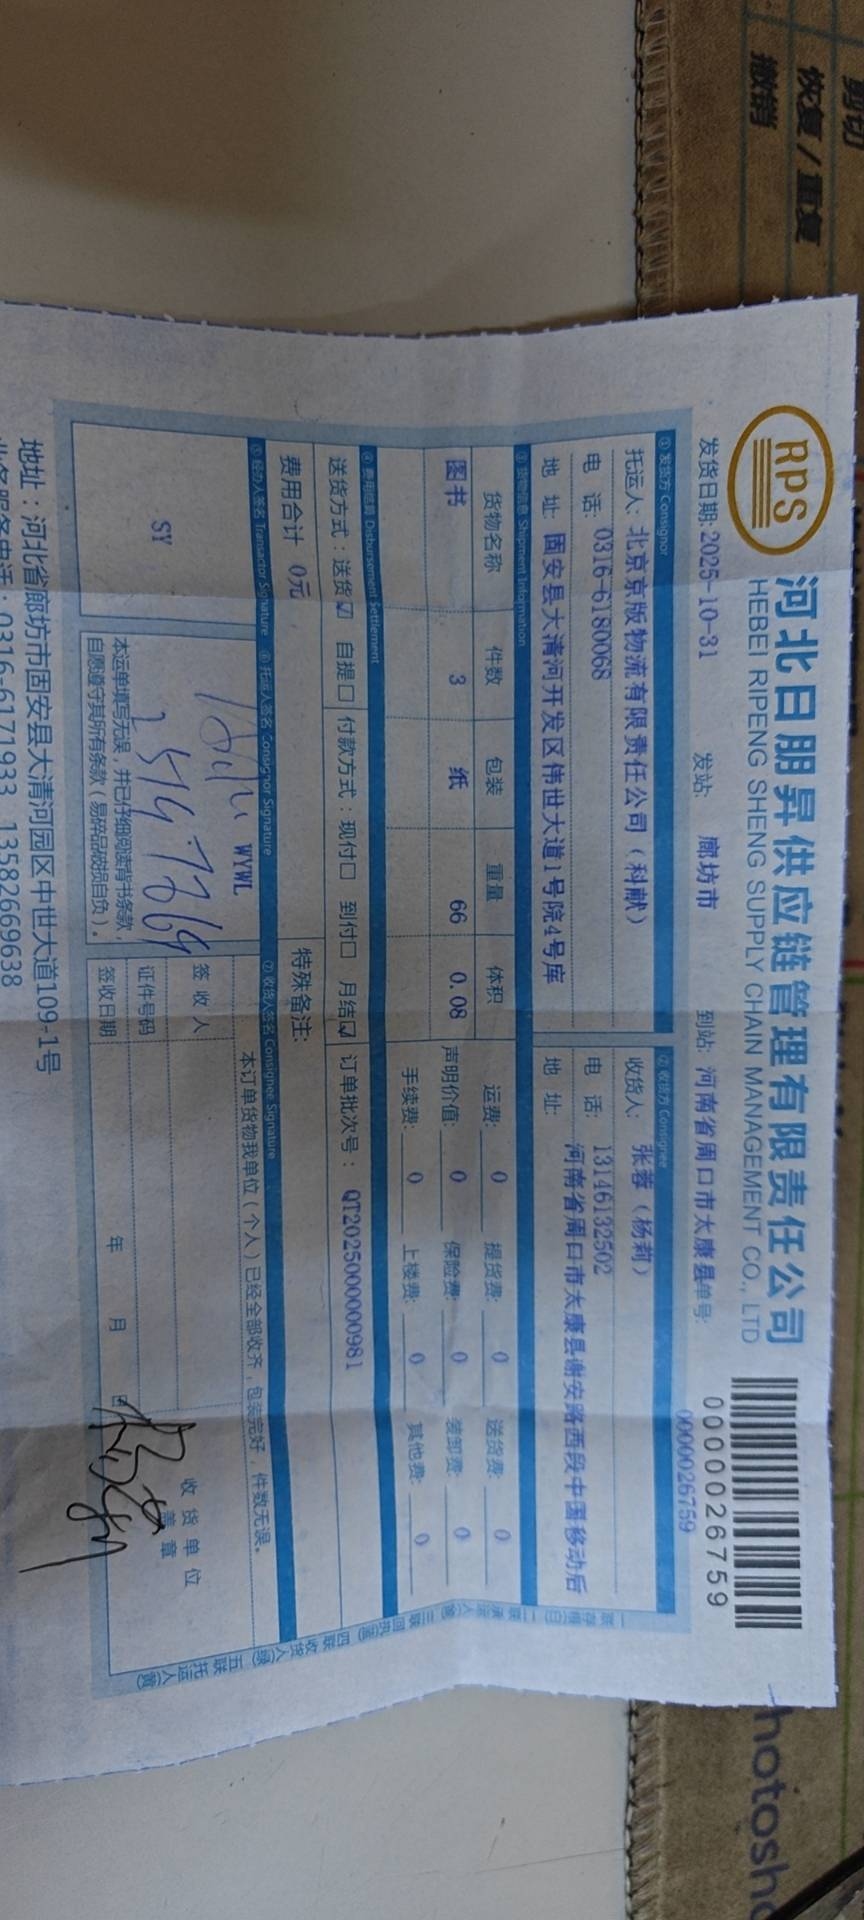 剪切
恢复/重复
撤销
RPS
河北日朋昇供应链管理有限责任公司
HEBEI RIPENG SHENG SUPPLY CHAIN MANAGEMENT CO., LTD
0000026759
发货日期: 2025-10-31 发站: 廊坊市 到站: 河南省周口市太康县 单号: 0000026759
①发货方 Consignor ②收货方 Consignee
托运人: 北京京版物流有限责任公司（科献） 收货人: 张蓉（杨莉）
电 话: 0316-6180068 电 话: 13146132502
地 址: 固安县大清河开发区伟世大道1号院4号库 地 址: 河南省周口市太康县谢安路西段中国移动后
③货物信息 Shipment Information
货物名称 件数 包装 重量 体积 运费: 0 提货费: 0 送货费: 0
图书 3 纸 66 0.08 声明价值: 0 保险费: 0 装卸费: 0
手续费: 0 上楼费: 0 其他费: 0
④费用结算 Disbursement Settlement
送货方式: 送货☑ 自提☐ 付款方式: 现付☐ 到付☐ 月结☑ 订单批次号: QT2025000000981
费用合计 0元 特殊备注:
⑤经办人签名 Transactor Signature ⑥托运人签名 Consignor Signature ⑦收货人签名 Consignee Signature
SY
WYWL
本运单填写无误，并已仔细阅读背书条款，
自愿遵守其所有条款（易碎品破损自负）。
本订单货物我单位（个人）已经全部收齐，包装完好，件数无误。
签 收 人 收货单位
证件号码 盖 章
签收日期 年 月 日
杨莉
地址：河北省廊坊市固安县大清河园区中世大道109-1号
业务服务电话：0316-6171933 13582669638
hotosh